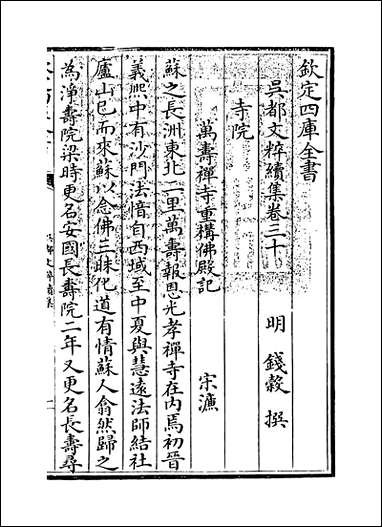 欽定四庫全書
吳都文粹續集卷三十
明 錢穀 撰
寺院
萬壽禪寺重構佛殿記
宋濂
蘇之長洲東北二里萬壽報恩光孝禪寺在内焉初晉
義熙中有沙門法愔自西域至中夏與慧遠法師結社
廬山已而來蘇以念佛三昧化道有情蘇人翕然歸之
為淨壽院梁時更名安國長壽院二年又更名長壽尋